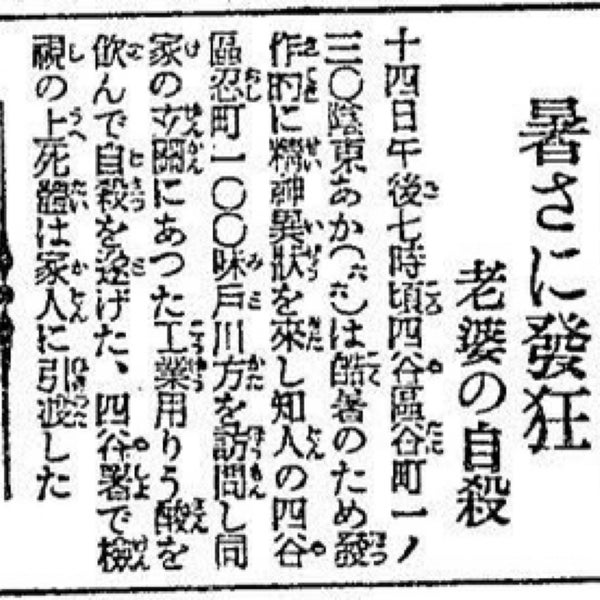 暑さに發狂
老婆の自殺
十四日午後七時頃四谷區谷町一ノ
三〇陰東あか(六六)は酷暑のため發
作的に精神異狀を來し知人の四谷
區忍町一〇〇味戸川方を訪問し同
家の玄關にあつた工業用りう酸を
飮んで自殺を遂げた、四谷署で檢
視の上死體は家人に引渡した